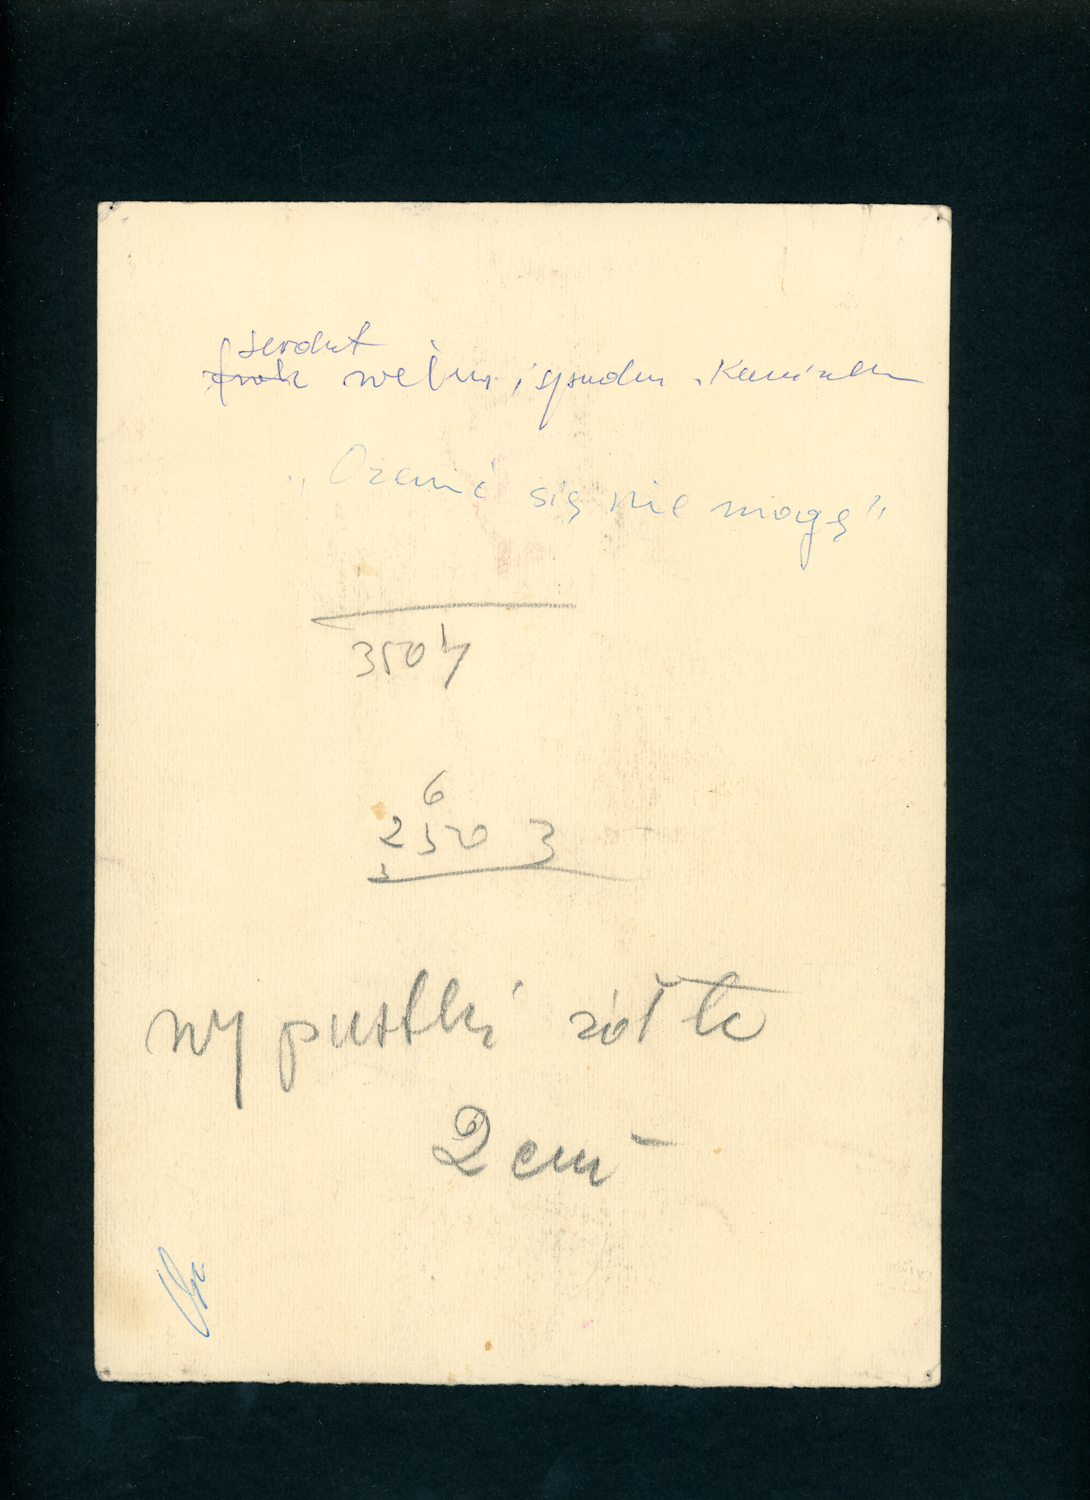 serdut
frak wełna i spodn. Kamizelka
„Ozenić się nie mogę"
3504
6
2520 3
wypustki żółte
2 cm